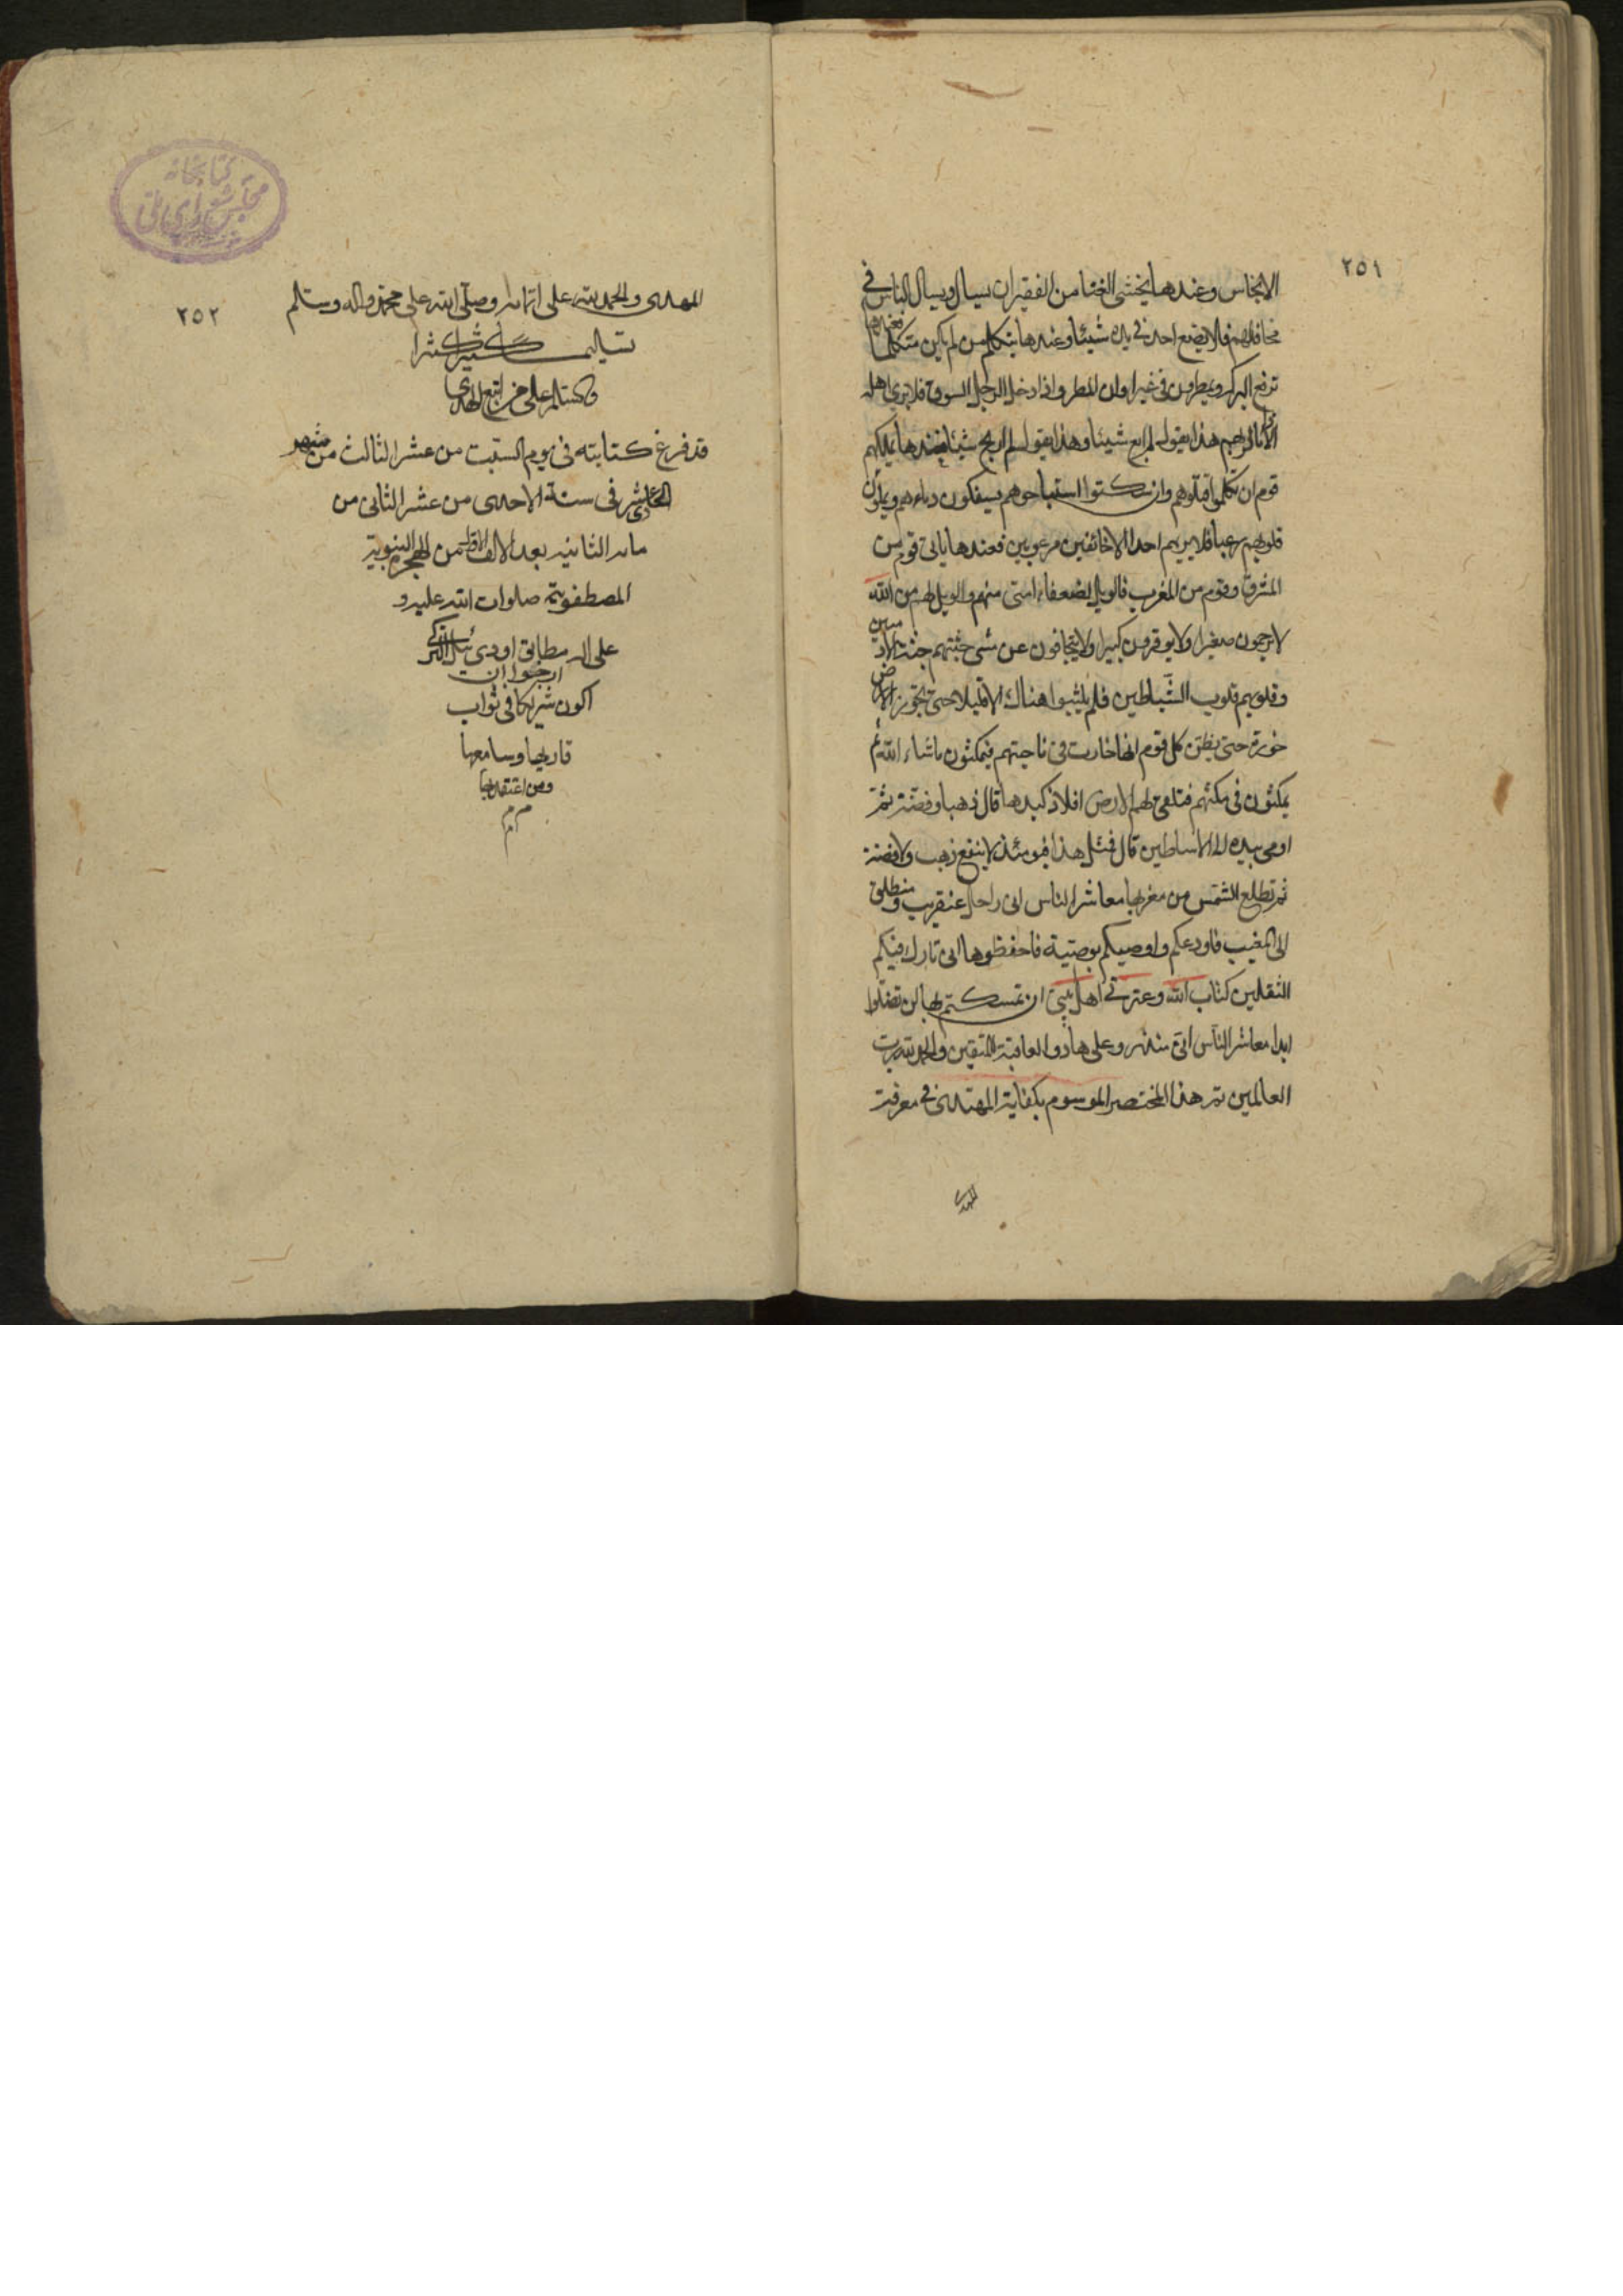 ٢٥١
الانجاس وعندها يخشى الغنا من الفقير ان يسال ويسال الناس في
محافلهم فلا يضع احد في يده شيئا وعندها يتكلم من لم يكن متكلما
ترفع البركة ويمطرون في غير اوان المطر واذا دخل الرجل السوق فلا يرى اهله
الا ذاما لربهم هذا يقول لم ابع شيئا وهذا يقول لم اربح شيئا فعندها يملكهم
قوم ان تكلموا قتلوهم وان سكتوا استباحوهم يسفكون دماءهم ويملؤن
قلوبهم رعبا فلا يريهم احد الا خائفين مرعوبين فعندها ياتى قوم من
المشرق وقوم من المغرب فالويل لضعفاء امتى منهم والويل لهم من الله
لا يرحمون صغيرا ولا يوقرون كبيرا ولا يتجافون عن شىء جثتهم جثة الادميين
وقلوبهم قلوب الشياطين فلم يلبثوا هناك الا قليلا حتى تخور الارض
خورة حتى يظن كل قوم انها خارت فى ناحيتهم فيمكثون ما شاء الله ثم
يمكثون فى مكثهم فتلقى لهم الارض افلاذ كبدها قال ذهبا وفضة ثم
اومى بيده الى الاساطين قال فمثل هذا فيومئذ لا ينفع ذهب ولا فضة
ثم تطلع الشمس من مغربها معاشر الناس انى راحل عنقريب ومنطلق
الى المغيب فاودعكم واوصيكم بوصية فاحفظوها انى تارك فيكم
الثقلين كتاب الله وعترتى اهل بيتى ان تمسكتم بها لن تضلوا
ابدا معاشر الناس انى منذر وعلى هاد والعاقبة للمتقين والحمد لله رب
العالمين تم هذا المختصر الموسوم بكفاية المهتدى فى معرفة
المهدى
٢٥٢
المهدى والحمد لله على اتمامه وصلى الله على محمد واله وسلم
تسليما كثيرا كثيرا
والسلام على من اتبع الهدى
قد فرغ كتابته فى يوم السبت من عشر الثالث من شهر
الحادى عشر فى سنة الاحدى من عشر الثانى من
مائة الثانية بعد الالف من الهجرة النبوية
المصطفوية صلوات الله عليه و
على اله مطابق اودى ئيل تركى
ارجوا ان
اكون شريكا فى ثواب
قاريها وسامعها
ومن اعتقد بها
م م م
كتابخانه
مجلس شورای ملی